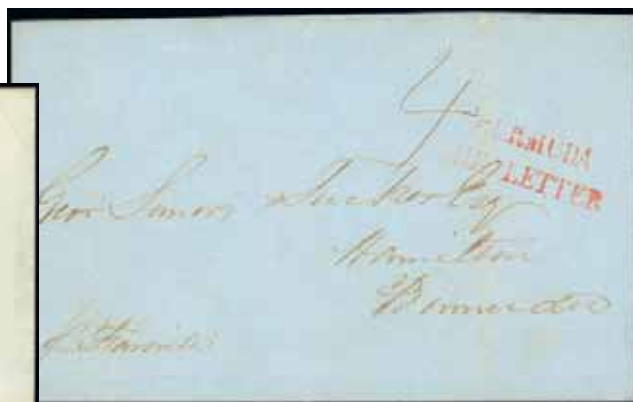 4
BERMUDA
SHIP LETTER
Geo. Simon Tucker Esq
Hamilton
Bermuda